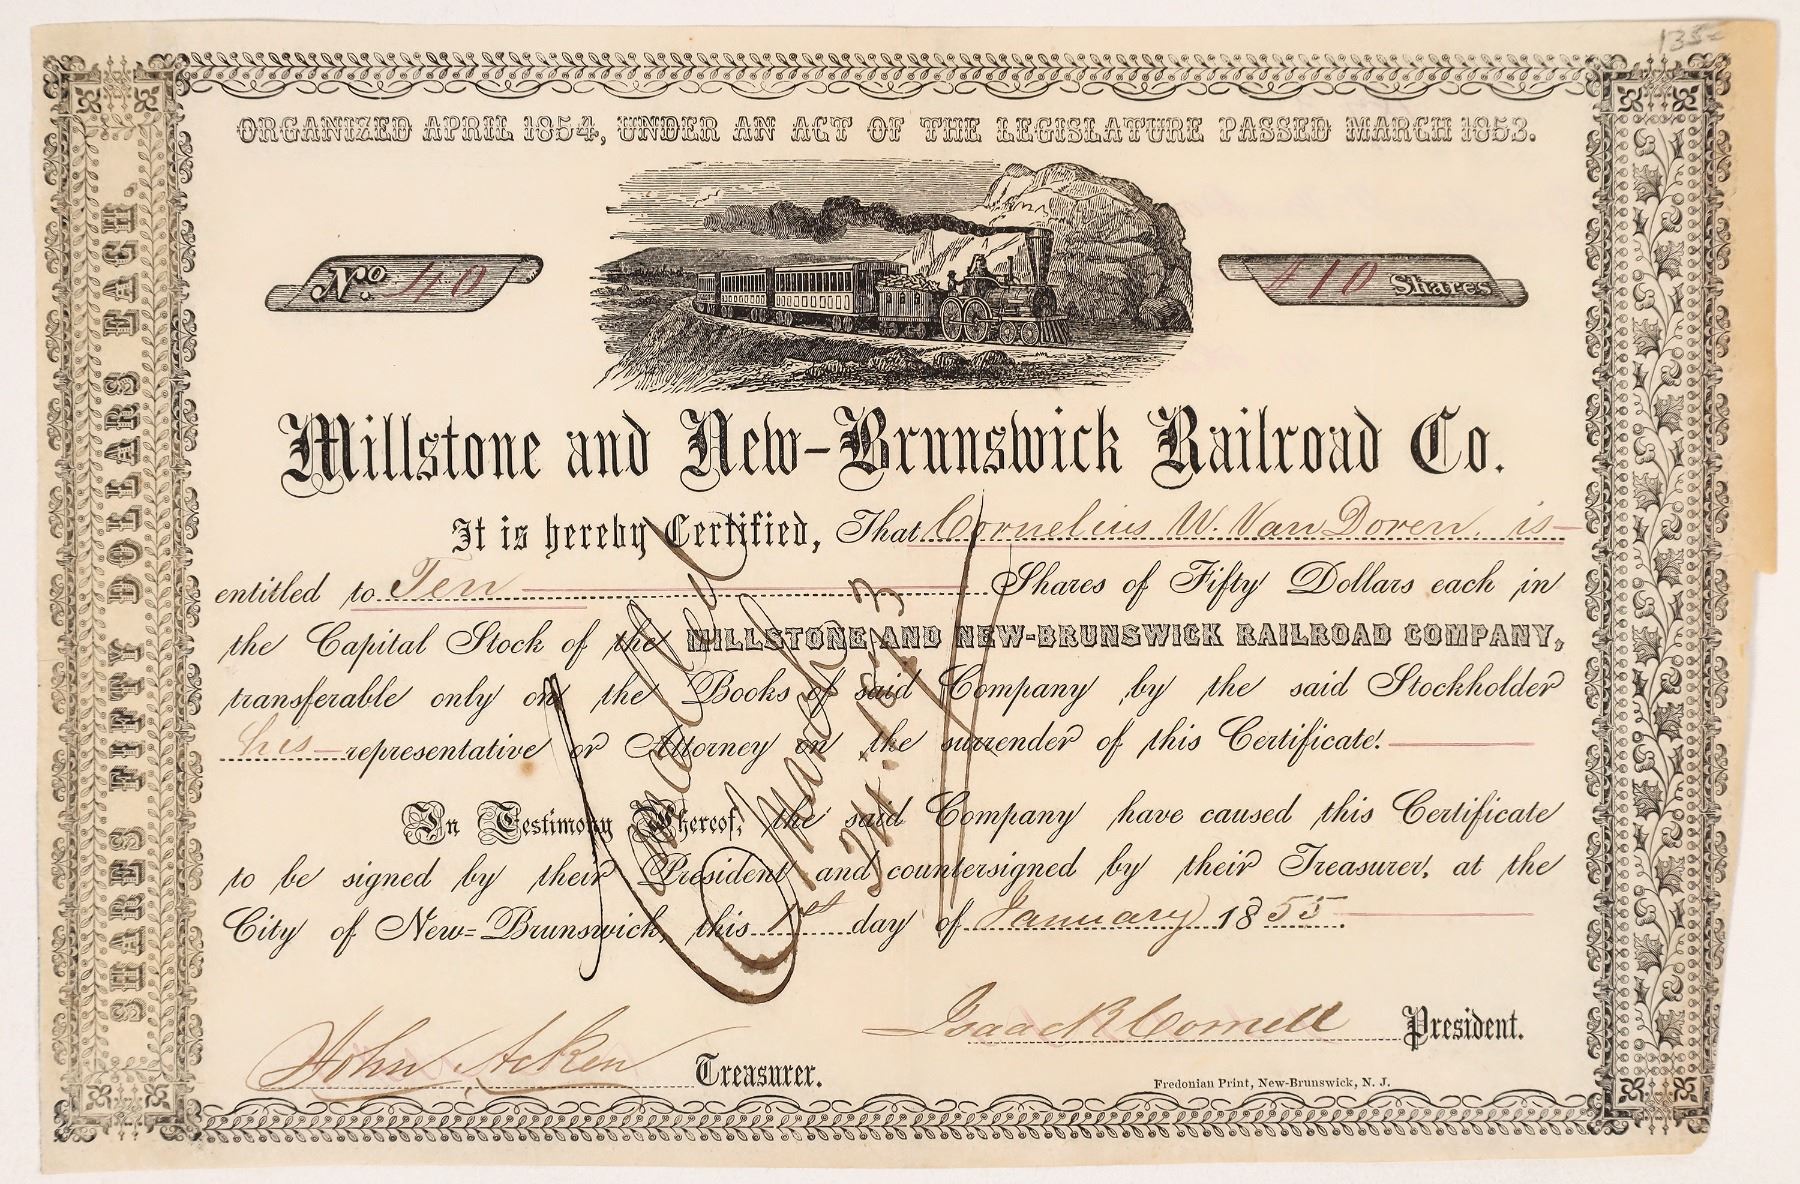 135
ORGANIZED APRIL 1854, UNDER AN ACT OF THE LEGISLATURE PASSED MARCH 1853.
No. 40
10 Shares
SHARES FIFTY DOLLARS EACH.
Millstone and New-Brunswick Railroad Co.
It is hereby Certified, That Cornelius W. Van Doren is
entitled to Ten Shares of Fifty Dollars each in
the Capital Stock of the MILLSTONE AND NEW-BRUNSWICK RAILROAD COMPANY,
transferable only on the Books of said Company by the said Stockholder
his representative or Attorney on the surrender of this Certificate.
In Testimony Whereof, the said Company have caused this Certificate
to be signed by their President and countersigned by their Treasurer, at the
City of New-Brunswick, this 1st day of January 1855.
Cancelled
March
John Acken Treasurer.
Isaac R Cornell President.
Fredonian Print, New-Brunswick, N. J.